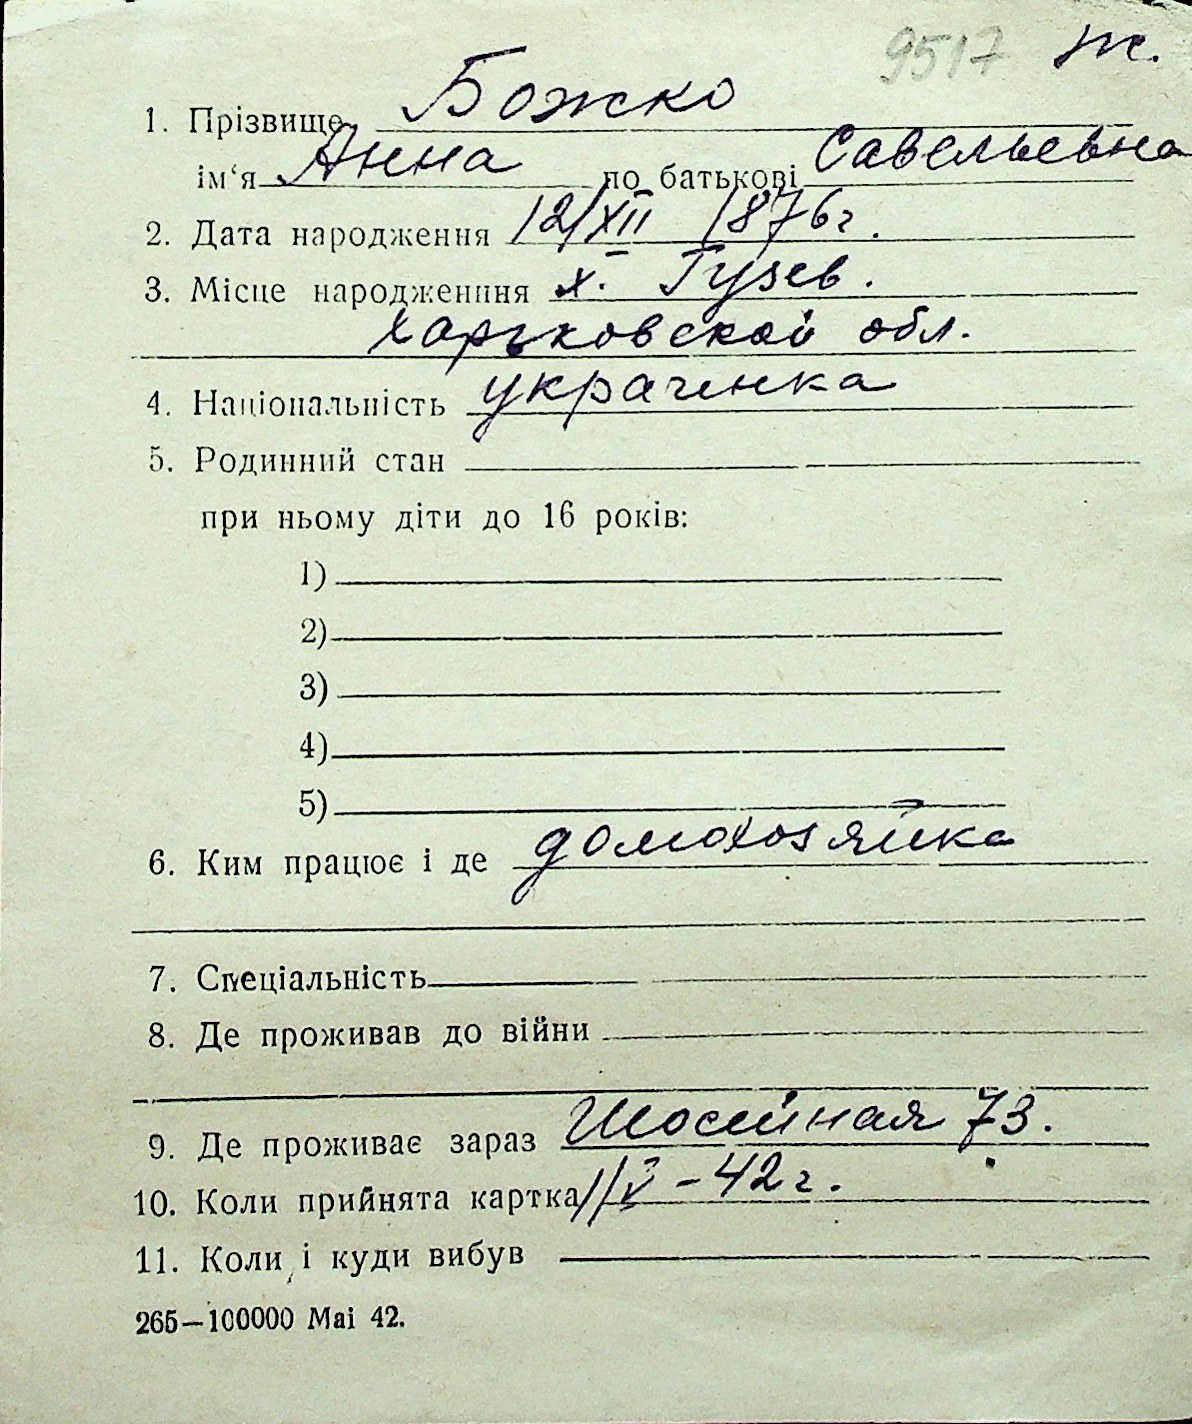 9517 ж.
1. Прізвище Божко
ім‘я Анна по батькові Савельевна
2. Дата народження 12/XII 1876г.
3. Місце народженння х. Гузев.
Харьковской обл.
4. Національність украинка
5. Родинний стан
при ньому діти до 16 років:
1)
2)
3)
4)
5)
6. Ким працює і де домохозяйка
7. Спеціальність
8. Де проживав до війни
9. Де проживає зараз Шосейная 73.
10. Коли прийнята картка 1/V – 42 г.
11. Коли і куди вибув
265—100000 Mai 42.